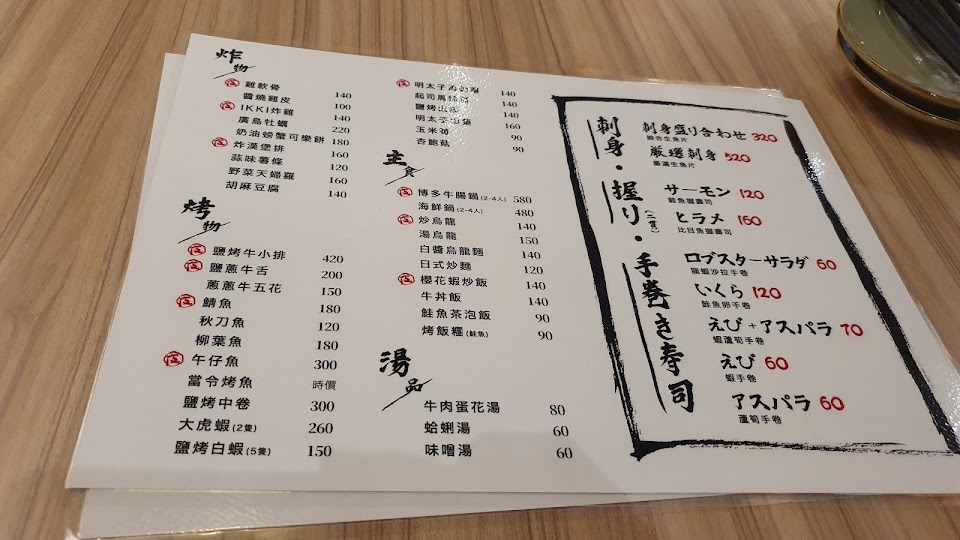 炸物
雞軟骨 140
醬燒雞皮 100
IKKI炸雞 140
廣島牡蠣 220
奶油螃蟹可樂餅 180
炸漢堡排 160
蒜味薯條 120
野菜天婦羅 160
胡麻豆腐 140
烤物
鹽烤牛小排 420
鹽蔥牛舌 200
蔥蔥牛五花 150
鯖魚 180
秋刀魚 120
柳葉魚 180
午仔魚 300
當令烤魚 時價
鹽烤中卷 300
大虎蝦(2隻) 260
鹽烤白蝦(5隻) 150
明太子 140
起司馬鈴薯 140
鹽烤 140
明太子 160
玉米筍 90
杏鮑菇 90
主食
博多牛腸鍋(2-4人) 580
海鮮鍋(2-4人) 480
炒烏龍 140
湯烏龍 150
白醬烏龍麵 140
日式炒麵 120
櫻花蝦炒飯 140
牛丼飯 140
鮭魚茶泡飯 90
烤飯糰(鮭魚) 90
湯品
牛肉蛋花湯 80
蛤蜊湯 60
味噌湯 60
刺身・握り(二貫)・手巻き寿司
刺身盛り合わせ 320
綜合生魚片
厳選刺身 520
嚴選生魚片
サーモン 120
鮭魚握壽司
ヒラメ 160
比目魚握壽司
ロブスターサラダ 60
龍蝦沙拉手卷
いくら 120
鮭魚卵手卷
えび+アスパラ 70
蝦蘆筍手卷
えび 60
蝦手卷
アスパラ 60
蘆筍手卷